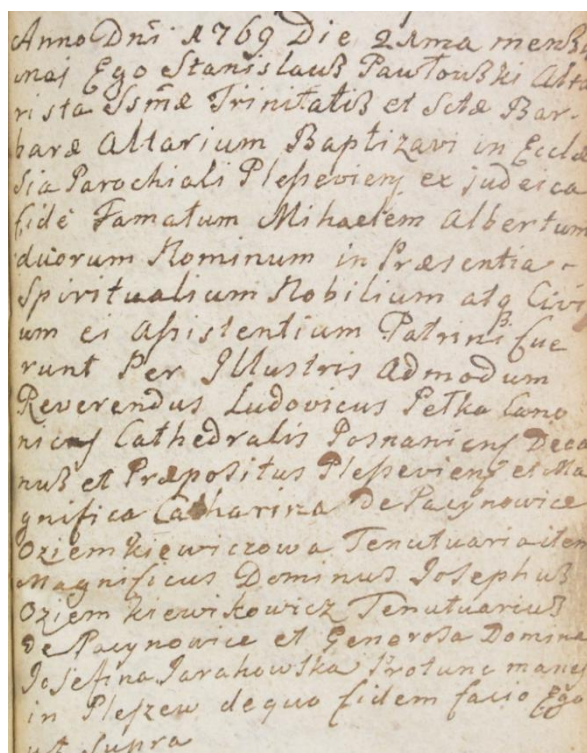 Anno Dni 1769 Die 21ma mens
maj Ego Stanislauß Pawłoußki Alta
rista SSmæ Trinitatiß et Sctæ Bar-
baræ Altarium Baptizavi in Eccle
sia Parochiali Pleßeviens ex judeica
fide Famatum Mihaelem Albertum
duorum Nominum in Præsentia -
Spiritualium Nobilium atq Civi
um ei Aßistentium Patrini ß. fue
runt Per Illustris Admodum
Reverendus Ludovicus Pełka Cano
nicus Cathedralis Posnaniens Deca
nuß et Præpositus Pleßeviens et Ma
gnifica Catharina de Pacynowice
Oziemkiewiczowa Tenutuaria item
Magnificus Dominuß Josephuß
Oziemkiewikowicz Tenutuariuß
de Pacynowice et Generosa Domina
Josefina Jarahowska Protunc manes
in Pleszew de quo fidem facio Ego
ut Supra